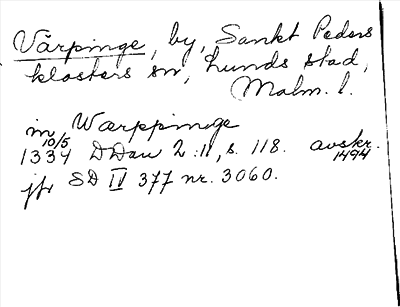 Värpinge, by, Sankt Peders
klosters sn, Lunds stad,
Malm. l.
in Wærppinge
10/5
1334 DDan 2:11, s. 118. avskr. 1494
jfr SD IV 377 nr. 3060.